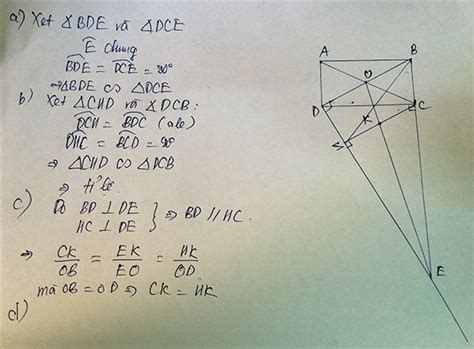 a) Xét ΔBDE và ΔDCE
Ê chung
BDE = DCE = 90°
⇒ ΔBDE ∽ ΔDCE
b) Xét ΔCHD và ΔDCB:
DCH = BDC (slt)
DHC = BCD = 90°
⇒ ΔCHD ∽ ΔDCB
⇒
c) Do BD ⊥ DE
HC ⊥ DE } ⇒ BD // HC.
⇒ CK/OB = EK/EO = HK/OD
mà OB = OD ⇒ CK = HK
d)
A B
O
D C
K
E